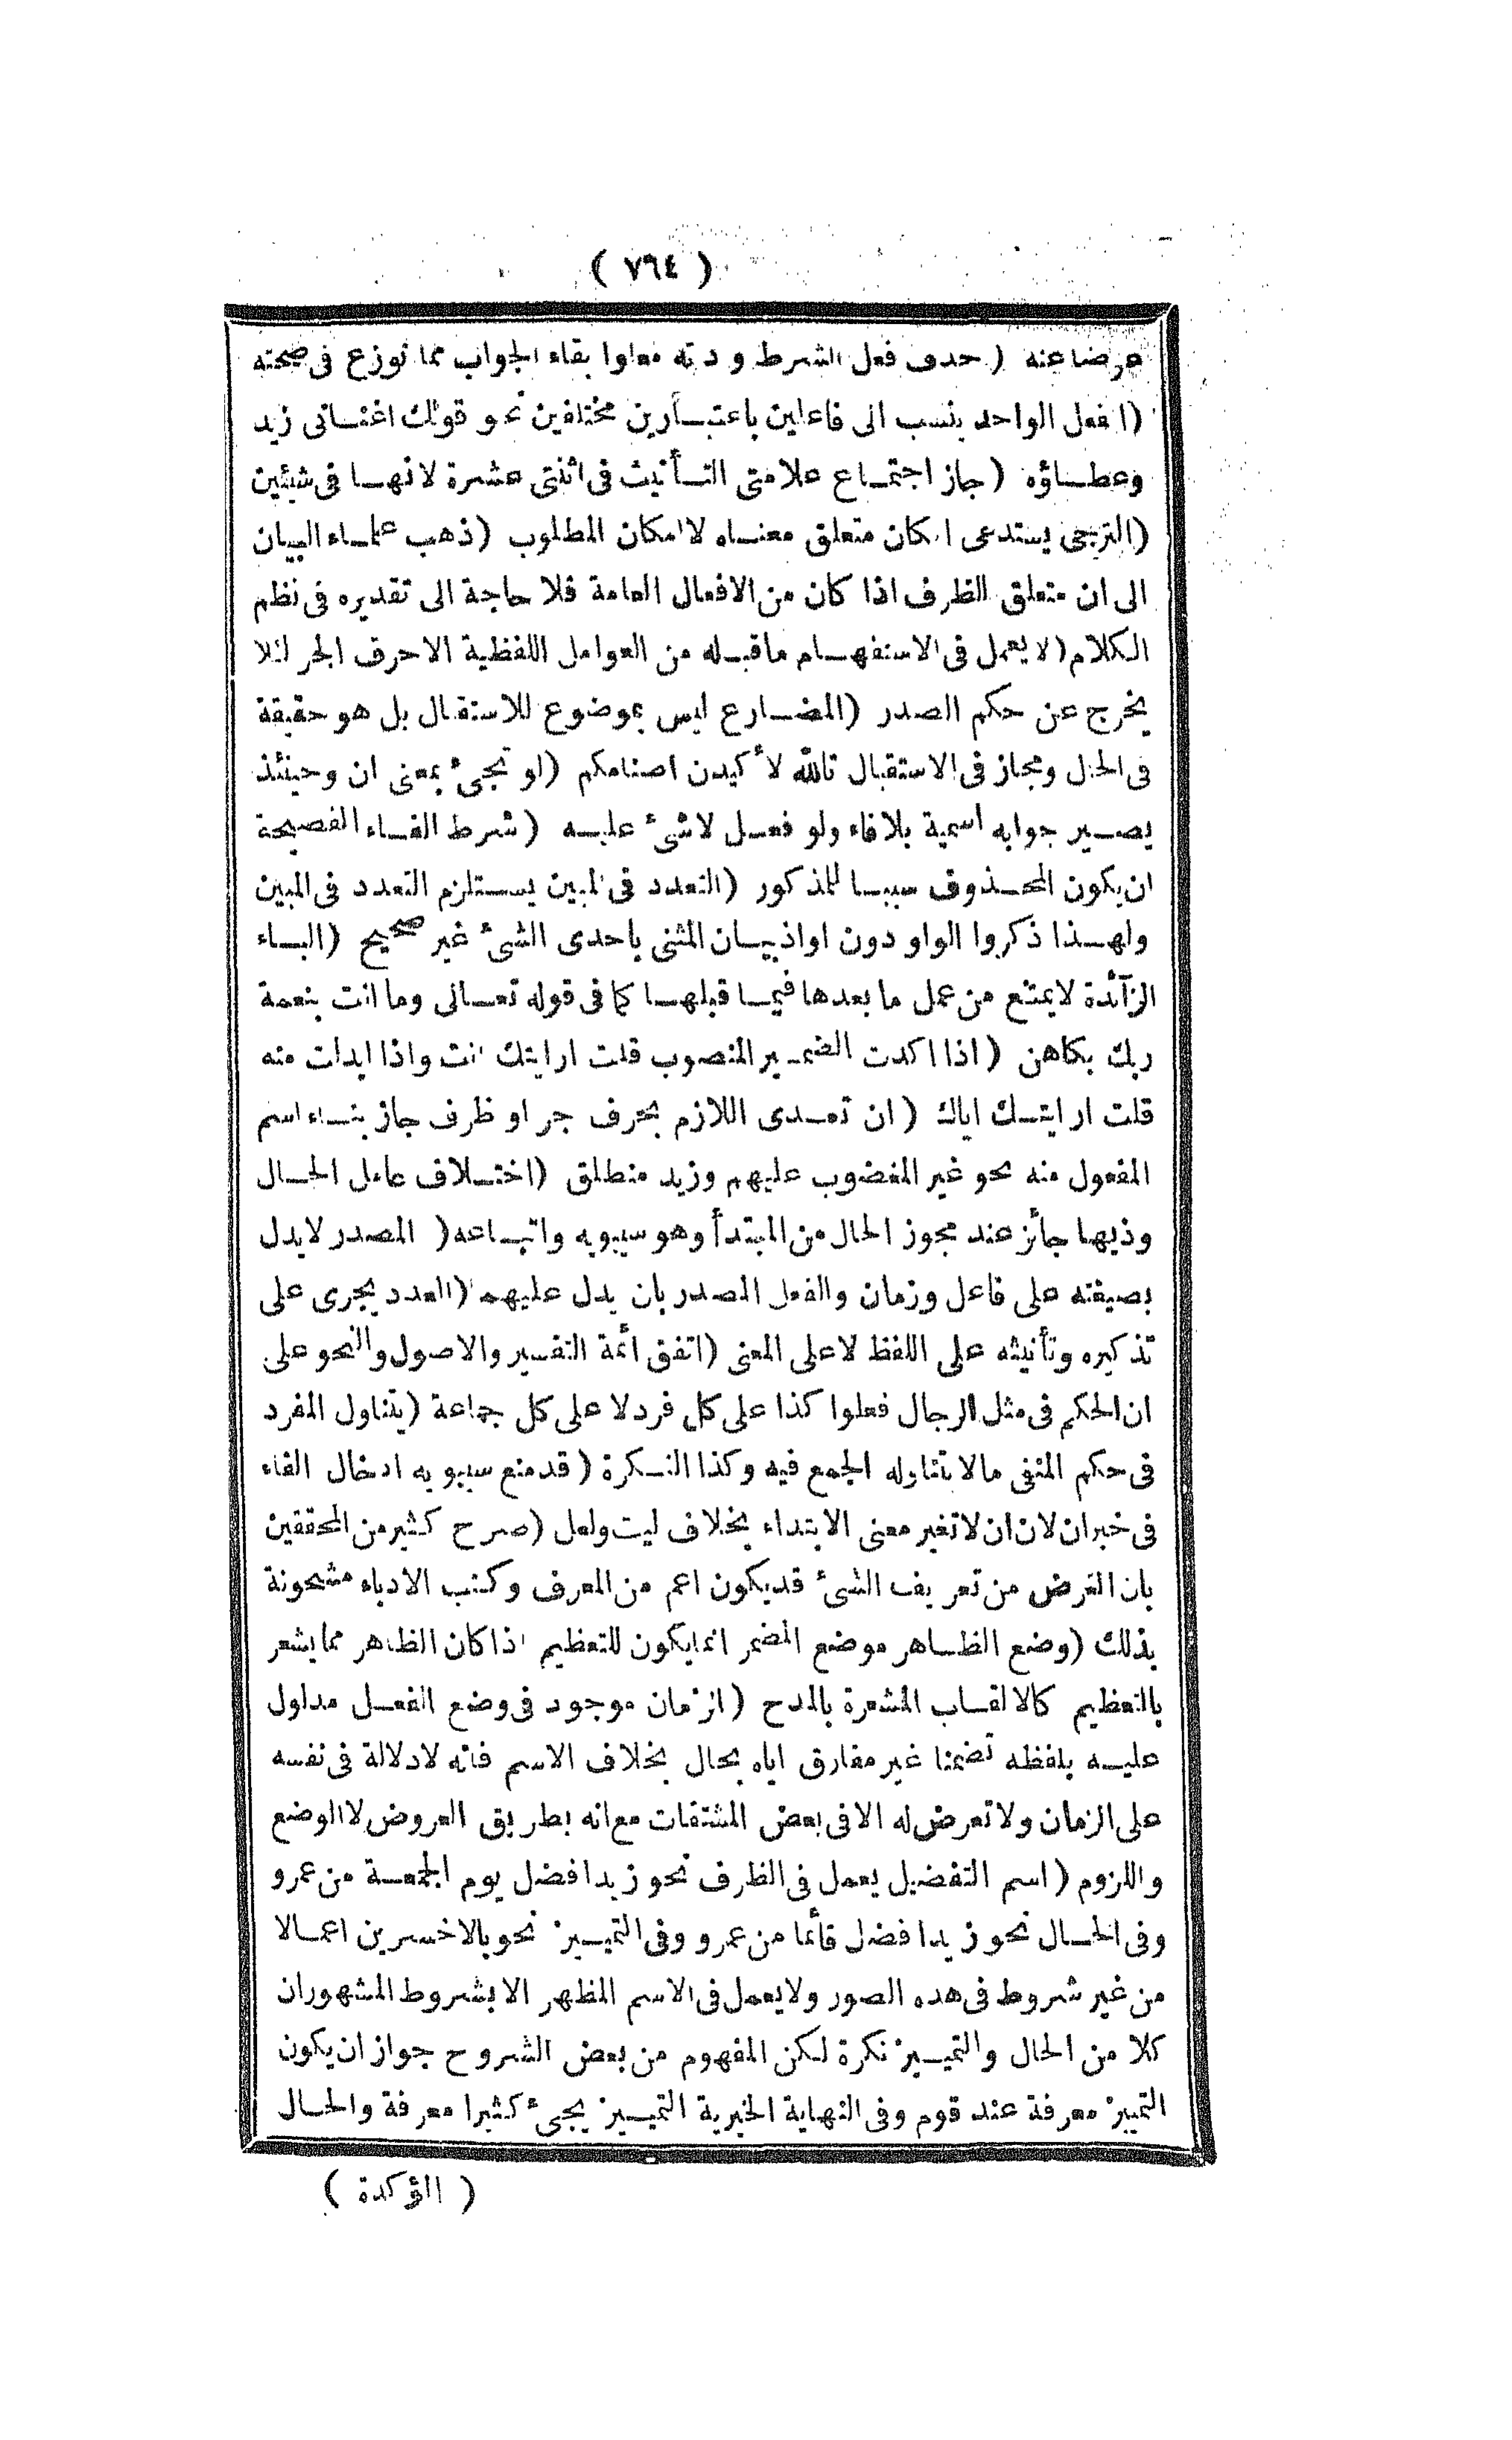 ( ٧٦٤ )
عوضا عنه ( حذف فعل الشرط وادته معاوا بقاء الجواب مما نوزع فى صحته
( الفعل الواحد ينسب الى فاعلين باعتبارين مختلفين نحو قولك اغنانى زيد
وعطاؤه ( جاز اجتماع علامتى التأنيث فى اثنتى عشرة لانهما فى شيئين
( الترجى يستدعى امكان متعلق معناه لا امكان المطلوب ( ذهب علماء البيان
الى ان متعلق الظرف اذا كان من الافعال العامة فلا حاجة الى تقديره فى نظم
الكلام ( لا يعمل فى الاستفهام ما قبله من العوامل اللفظية الا حرف الجر لئلا
يخرج عن حكم الصدر ( المضارع ليس بموضوع للاستقبال بل هو حقيقة
فى الحال ومجاز فى الاستقبال تالله لأكيدن اصنامكم ( لو تجئ بمعنى ان وحينئذ
يصير جوابه اسمية بلا فاء ولو فعل لا شئ عليه ( شرط الفاء الفصيحة
ان يكون المحذوف سببا للمذكور ( التعدد فى المبين يستلزم التعدد فى المبين
ولهذا ذكروا الواو دون او اذ بيان المثنى باحدى الشئ غير صحيح ( الباء
الزآئدة لا يمتنع من عمل ما بعدها فيما قبلها كما فى قوله تعالى وما انت بنعمة
ربك بكاهن ( اذا اكدت الضمير المنصوب قلت ارايتك انت واذا ابدلت منه
قلت ارايتك اياك ( ان تعدى اللازم بحرف جر او ظرف جاز بناء اسم
المفعول منه نحو غير المغضوب عليهم وزيد منطلق ( اختلاف عامل الحال
وذيها جائز عند مجوز الحال من المبتدأ وهو سيبويه واتباعه ( المصدر لا يدل
بصيغته على فاعل وزمان والفعل المصدر بان يدل عليهما ( العدد يجرى على
تذكيره وتأنيثه على اللفظ لا على المعنى ( اتفق ائمة التفسير والاصول والنحو على
ان الحكم فى مثل الرجال فعلوا كذا على كل فرد لا على كل جماعة ( يتناول المفرد
فى حكم المنفى ما لا يتناوله الجمع فيه وكذا النكرة ( قد منع سيبويه ادخال الفاء
فى خبر ان لان ان لا تغير معنى الابتداء بخلاف ليت ولعل ( صرح كثير من المحققين
بان الغرض من تعريف الشئ قد يكون اعم من المعرف وكتب الادباء مشحونة
بذلك ( وضع الظاهر موضع المضمر انما يكون للتعظيم اذا كان الظاهر مما يشعر
بالتعظيم كالالقاب المشعرة بالمدح ( الزمان موجود فى وضع الفعل مدلول
عليه بلفظه تضمنا غير مفارق اياه بحال بخلاف الاسم فانه لا دلالة فى نفسه
على الزمان ولا تعرض له الا فى بعض المشتقات مع انه بطريق العروض لا الوضع
واللزوم ( اسم التفضيل يعمل فى الظرف نحو زيد افضل يوم الجمعة من عمرو
وفى الحال نحو زيد افضل قائما من عمرو وفى التمييز نحو بالاخسرين اعمالا
من غير شروط فى هذه الصور ولا يعمل فى الاسم المظهر الا بشروط المشهوران
كلا من الحال والتمييز نكرة لكن المفهوم من بعض الشروح جواز ان يكون
التمييز معرفة عند قوم وفى النهاية الخبرية التمييز يجئ كثيرا معرفة والحال
( المؤكدة )